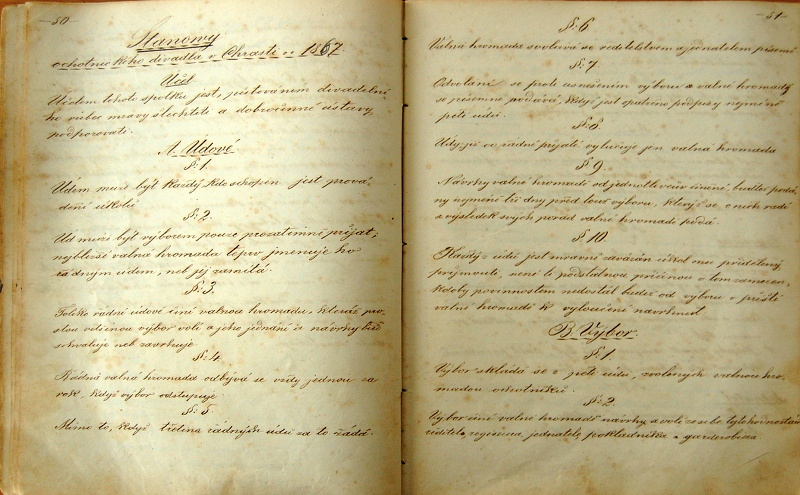 - 50 -
Stanovy
ochotnického divadla v Chrasti v r 1867.
Účel
Účelem tohoto spolku jest, pěstováním divadelní-
ho vůbec mravy šlechtiti a dobročinné ústavy
podporovati.
A. Údové
§. 1.
Údem může být každý, kdo schopen jest prová-
dění úkolů
§. 2.
Úd musí být výborem pouze prozatímně přijat,
nejbližší valná hromada teprv jmenuje ho
řádným údem, neb jej zamítá.
§. 3.
Toliko řádní údové činí valnou hromadu, kteráž pro-
stou většinou výbor volí a jeho jednání či návrhy buď
schvaluje neb zavrhuje
§. 4.
Řádná valná hromada odbývá se vždy jednou za
rok, když výbor odstupuje
§. 5
Mimo to, když třetina řádných údů za to žádá.
- 51 -
§. 6
Valná hromada svolává se ředitelstvem a jednatelem písemně
§. 7
Odvolání se proti usnešením výboru a valné hromady
se písemně podává, když jest opatřeno podpisy nejméně
pěti údů.
§. 8.
Údy již co řádné přijaté vylučuje jen valná hromada
§ 9.
Návrhy valné hromadě od jednotlivců činěné, buďtež podá-
ny nejméně tři dny před touž výboru, kterýž se o nich radí
a výsledek svých porad valné hromadě podá.
§. 10.
Každý z údů jest mravně zavázán úkol mu přidělený
přijmouti, není-li podstatnou příčinou o tom zamezen,
kdoby povinnostem nedostál budiž od výboru o příští
valné hromadě k vyloučení navrhnut
B. Výbor.
§. 1.
Výbor skládá se z pěti údů, zvolených valnou hro-
madou ochotníků.
§. 2
Výbor činí valné hromadě návrhy a volí ze sebe tyto hodnostáře
ředitele, regisseura, jednatele, pokladníka a garderobiera.